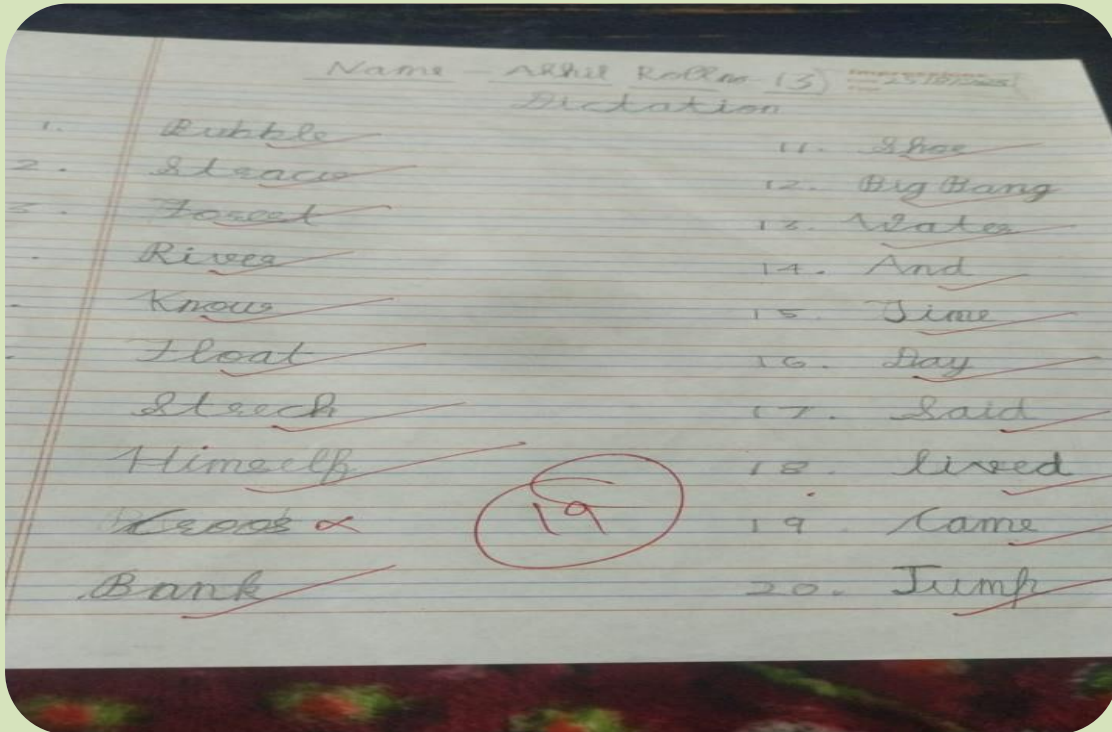 Name - Akhil Roll no (3)
Dictation
1. Bubble
2. Straw
3. Forest
River
Know
Float
Strech
Himself
Bank
11. Shoe
12. Big Bang
13. Water
14. And
15. Time
16. Day
17. Said
18. lived
19 Came
20. Jump
19